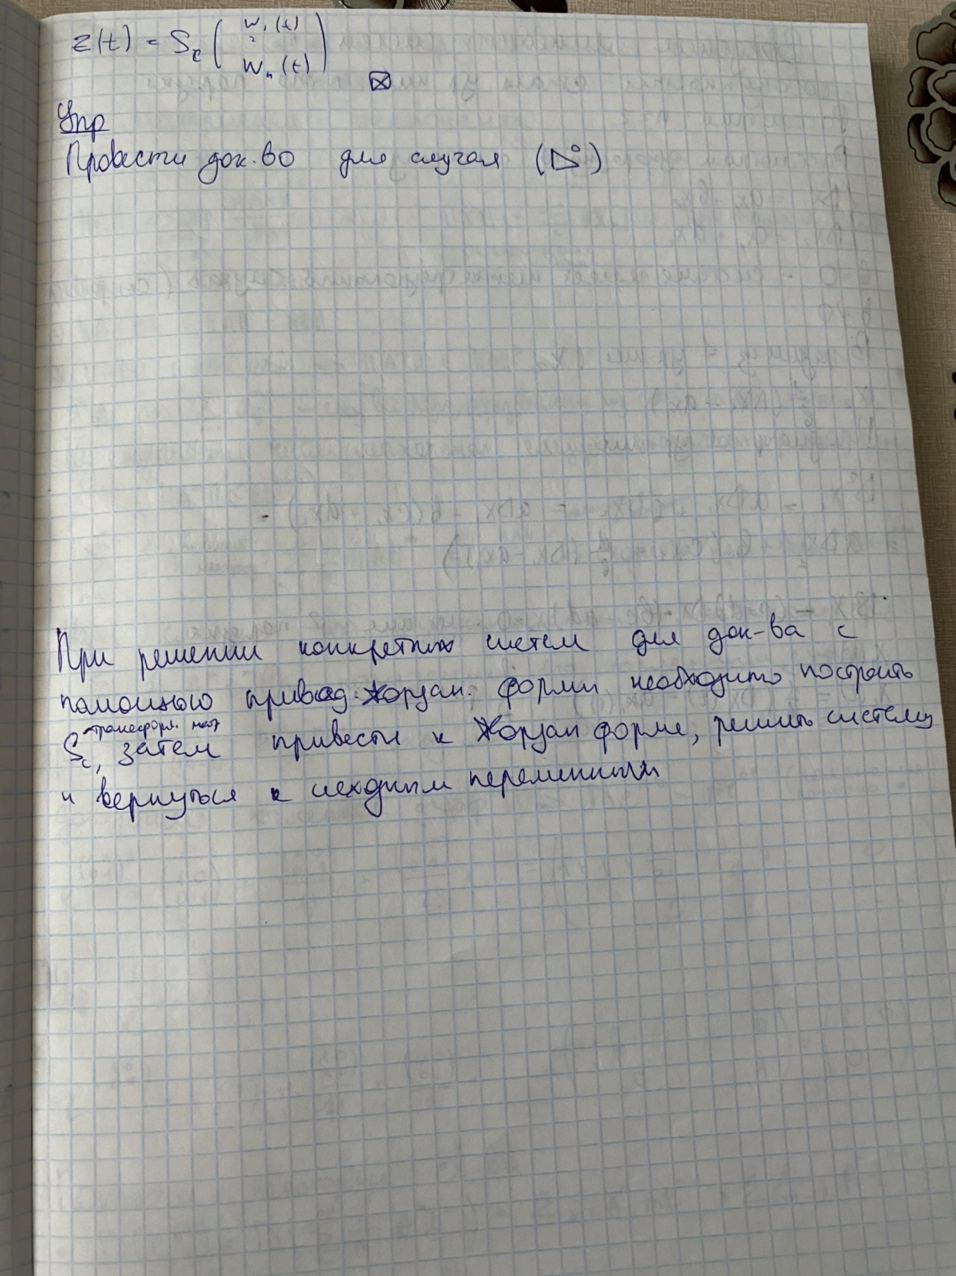 z(t) = S_c ( w_1(t) : w_n(t) ) ⊠
Упр
Провести док-во для случая (D°)
При решении конкретных систем для док-ва с
помощью привед. жордан. формы необходимо построить
трансформ.
S_c, затем привести к Жордан форме, решить систему
и вернуться к исходным переменным